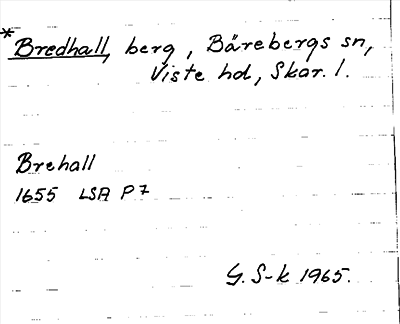 *Bredhall, berg, Bärebergs sn,
Viste hd, Skar. l.
Brehall
1655 LSA P7
G. S-k 1965.